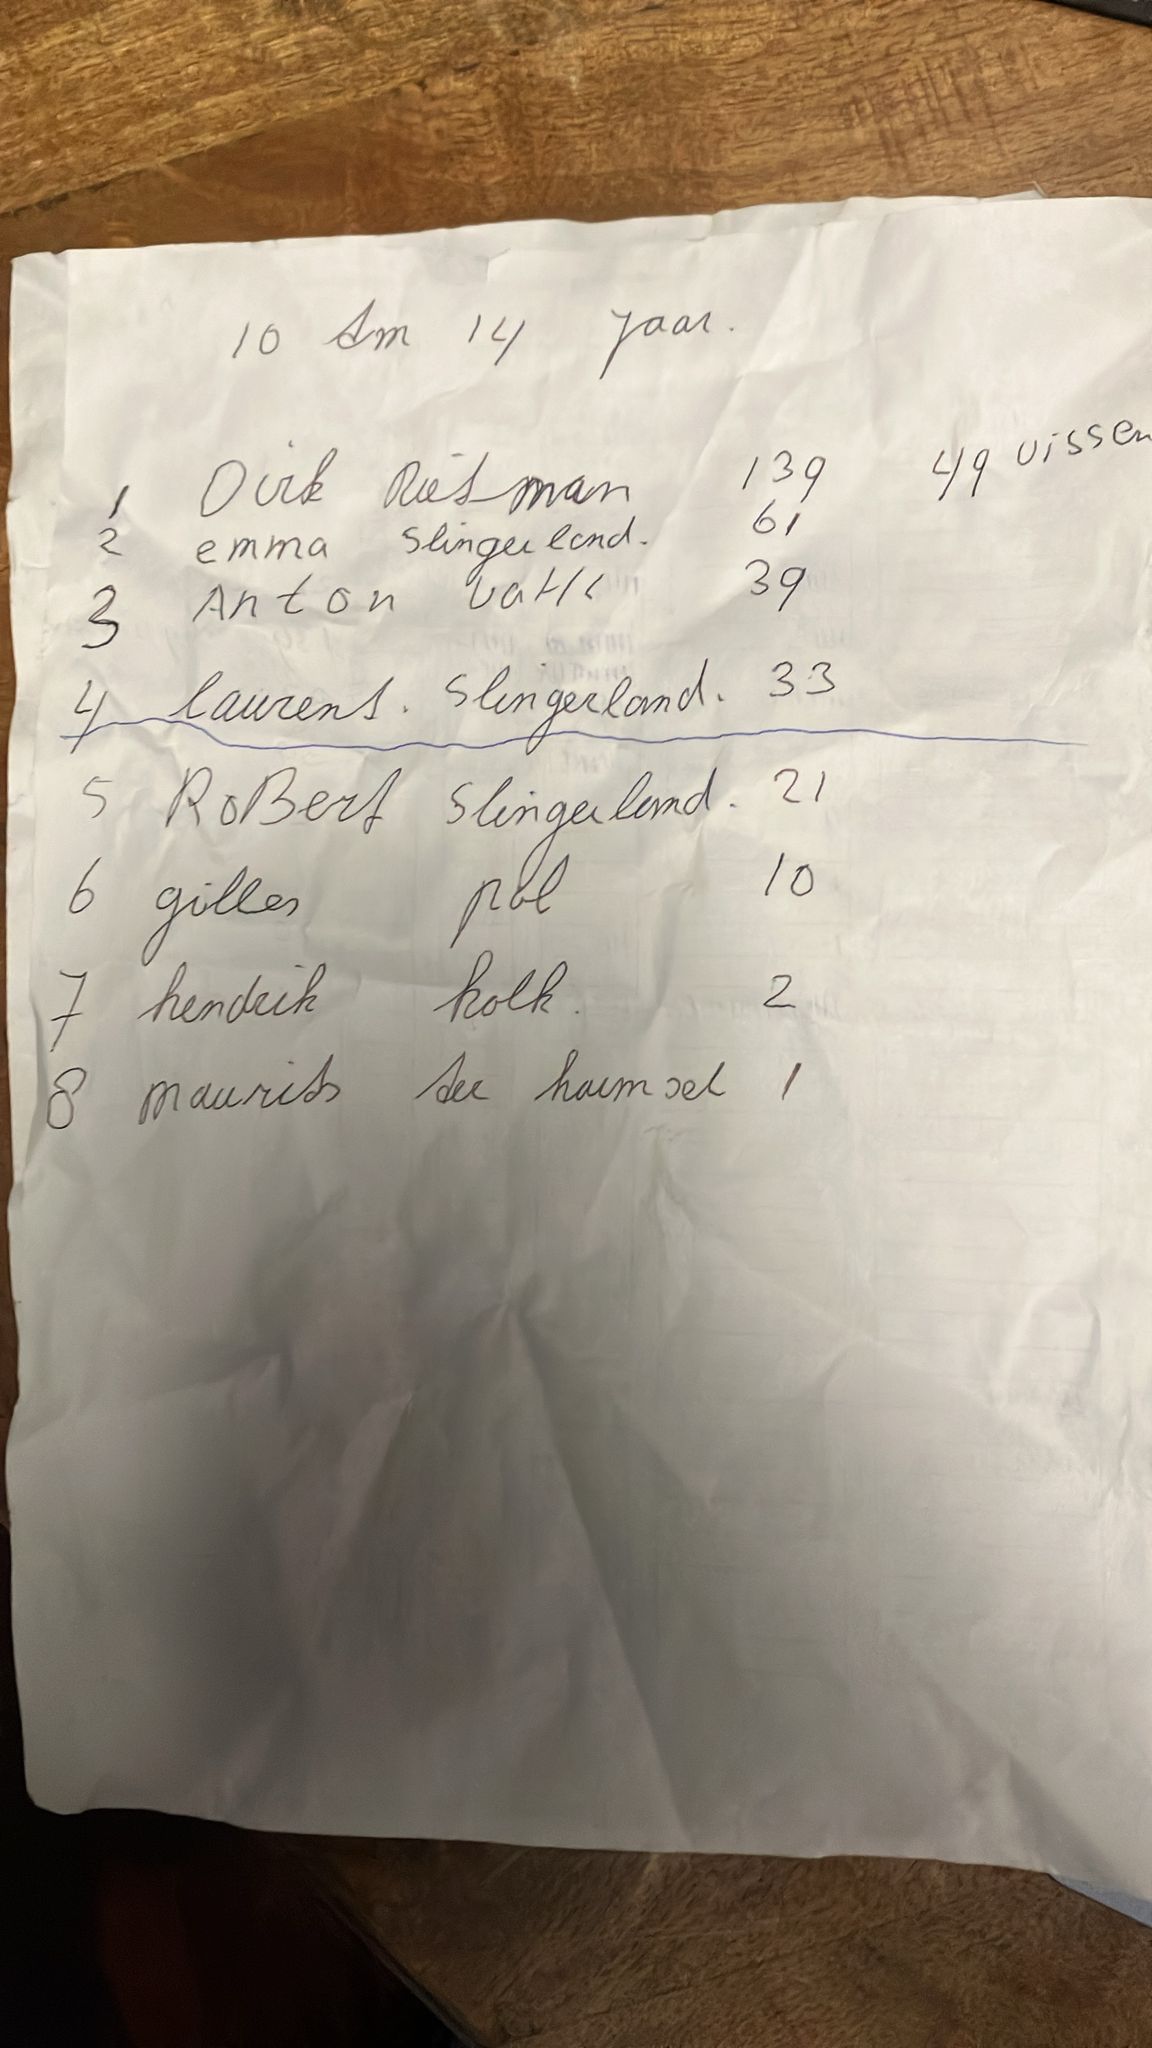 10 tm 14 jaar.
1 Dirk Rietman 139 49 vissen
2 emma Slingerland. 61
3 Anton 39
4 laurens. Slingerland. 33
5 RoBert Slingerland. 21
6 gilles pol 10
7 hendrik kolk. 2
8 maurits ter harmsel 1